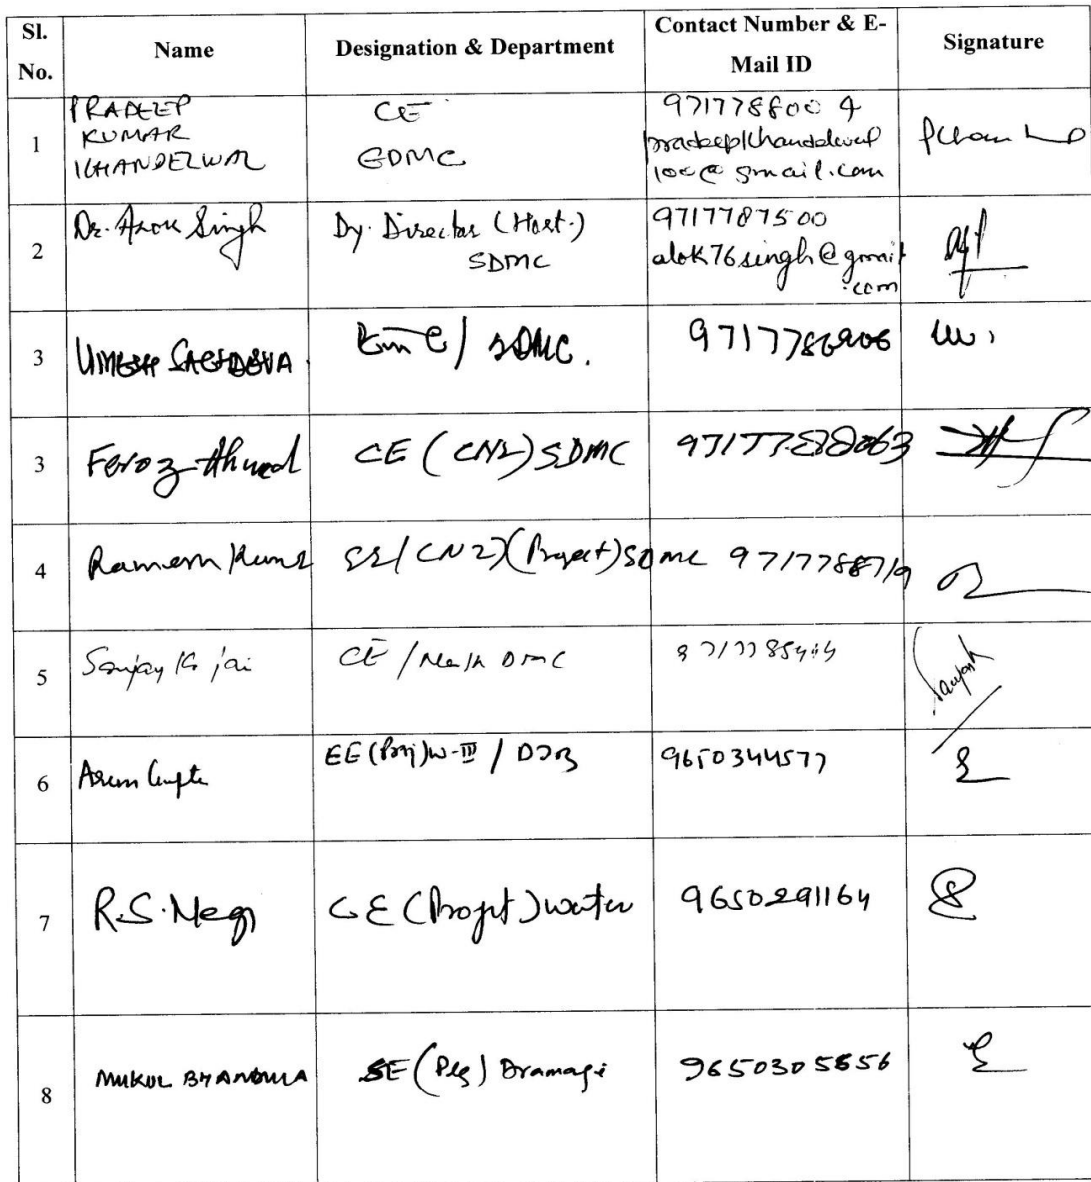 Sl. No. Name Designation & Department Contact Number & E-Mail ID Signature
1 PRADEEP KUMAR KHANDELWAL CE EDMC 9717788004 pradeepkhandelwal100@gmail.com
2 Dr. Alok Singh Dy. Director (Hort.) SDMC 9717787500 alok76singh@gmail.com
3 UMESH SACHDEVA E in C / SDMC.
3 Feroz Ahmed CE (CNZ) SDMC
4 Ramesh Kumar SE/(CNZ)(Project) SDMC 9717788719
5 Sanjay Kr jai CE / North DMC
6 Arun Gupta EE (Proj) W-III / DJB 9650344577
7 R.S. Negi CE (Project) water 9650291164
8 MUKUL BHANDULA SE (Plg) Drainage 9650305856